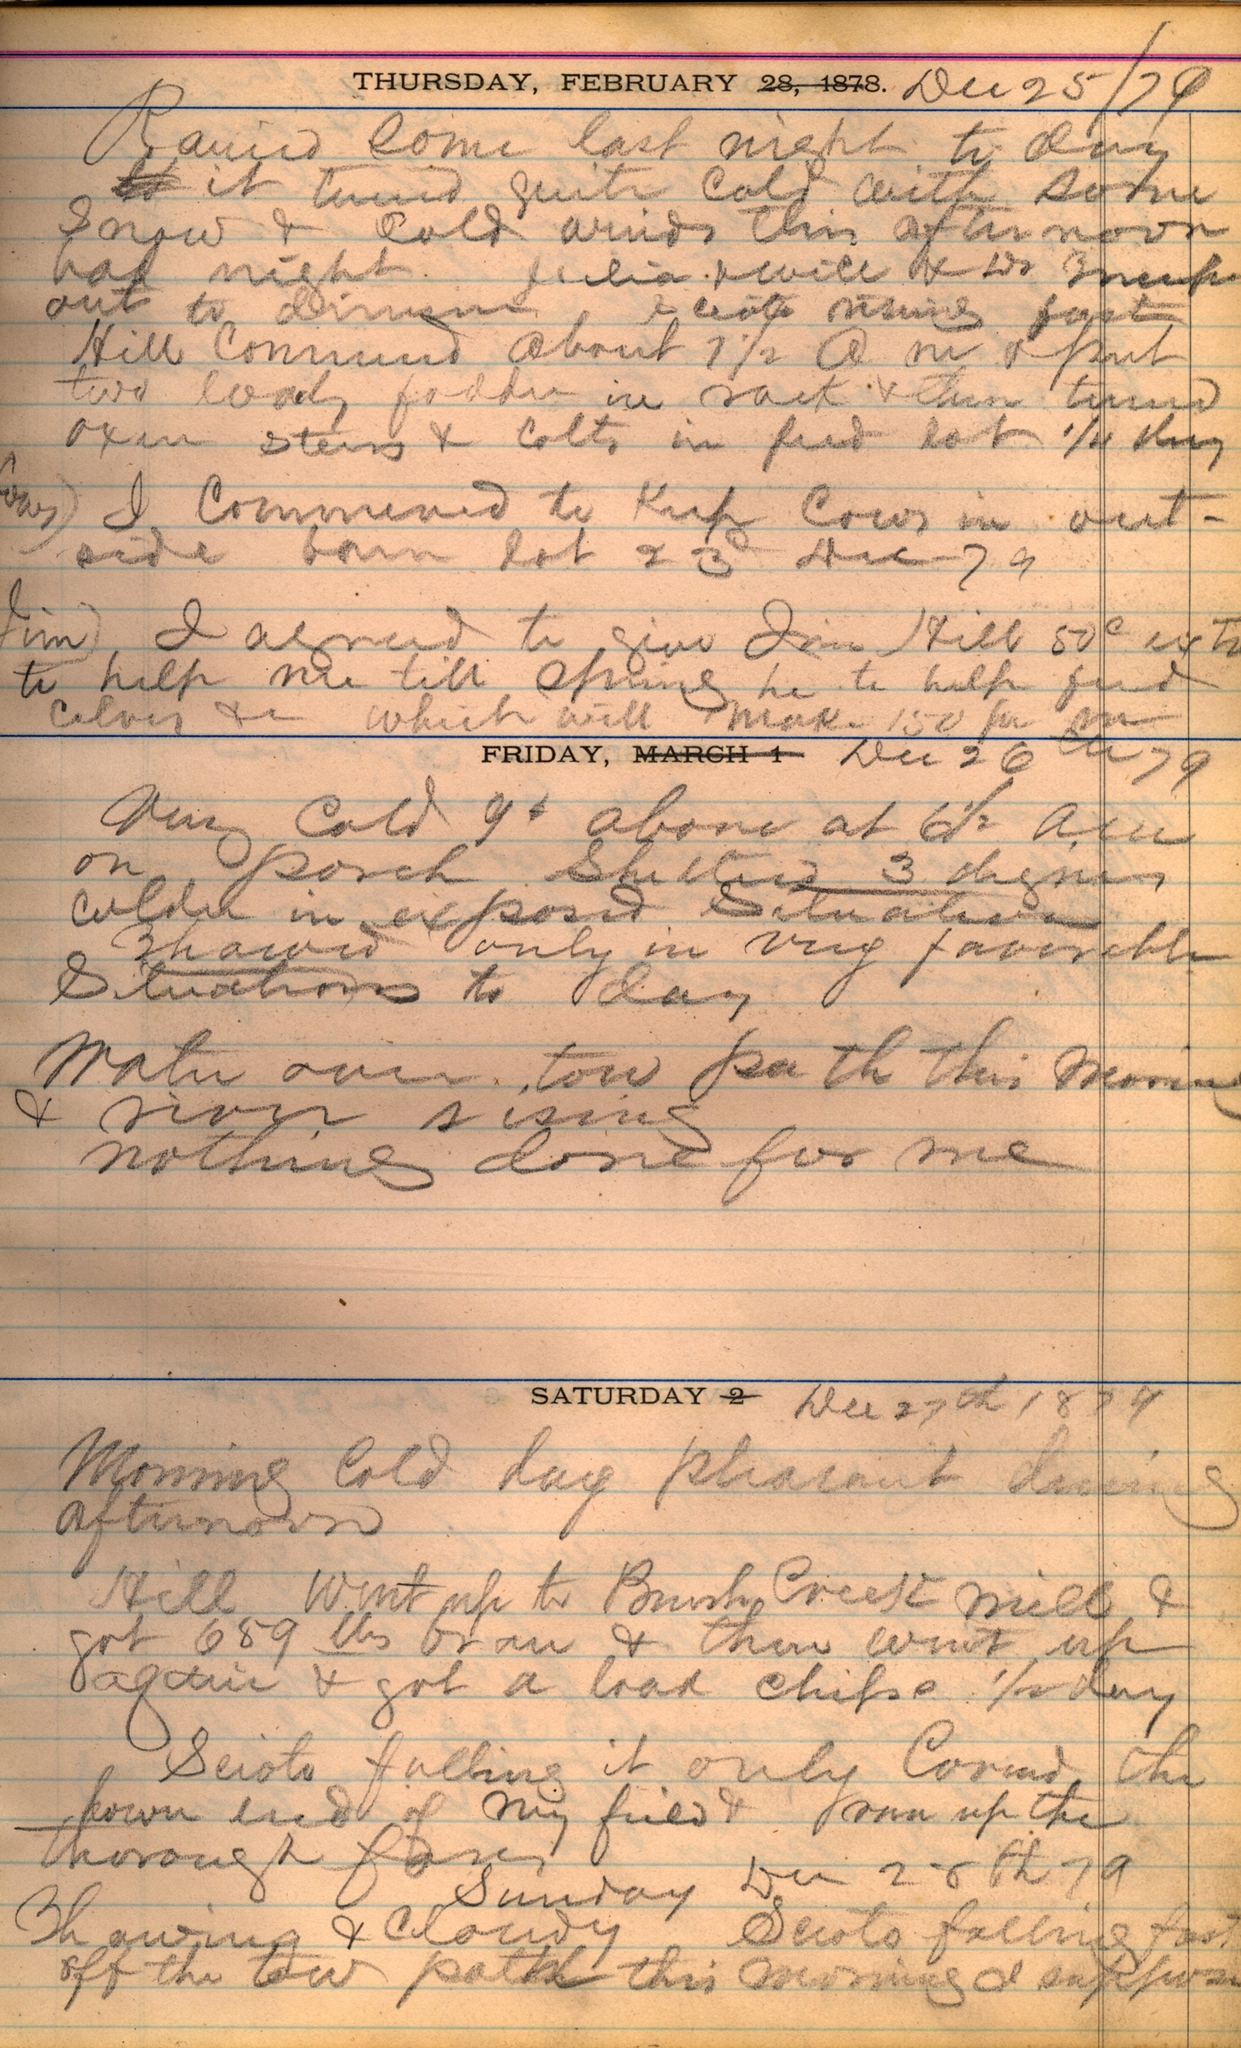 THURSDAY, FEBRUARY 28, 1878. Dec 25/79
Rained Some last night to day
it turned quite Cold with some
Snow & Cold winds this afternoon
bad night Julia & Will & Dr
out to dinner Scioto rising fast
Hill Commenced About 7 1/2 A m & put
two loads fodder in rack & then turned
oxen steers & Colts in feed lot 1/4 day
Cows) I Commenced to Keep Cows in out-
side barn lot 23d Dec 79
Jim) I agreed to give Jim Hill 50c extra
to help me till Spring he to help feed
Calves &c which will make 150 per
FRIDAY, MARCH 1 Dec 26th 79
Very Cold 9° above at 6 1/2 A m
on porch Sheltered 3 degrees
colder in exposed Situation
Thawed only in very favorable
Situations to day
Water over tow path this Morning
& river rising
nothing done for me
SATURDAY 2 Dec 27th 1879
Morning Cold day pleasant during
afternoon
Hill Went up to Brush Creek mill &
got 659 lbs bran & then went up
again & got a load chips 1/2 day
Scioto falling it only Covered the
lower end of my field & ran up the
thoroughfares
Sunday Dec 28th 79
Thawing & Cloudy Scioto falling fast
off the tow path this morning I suppose